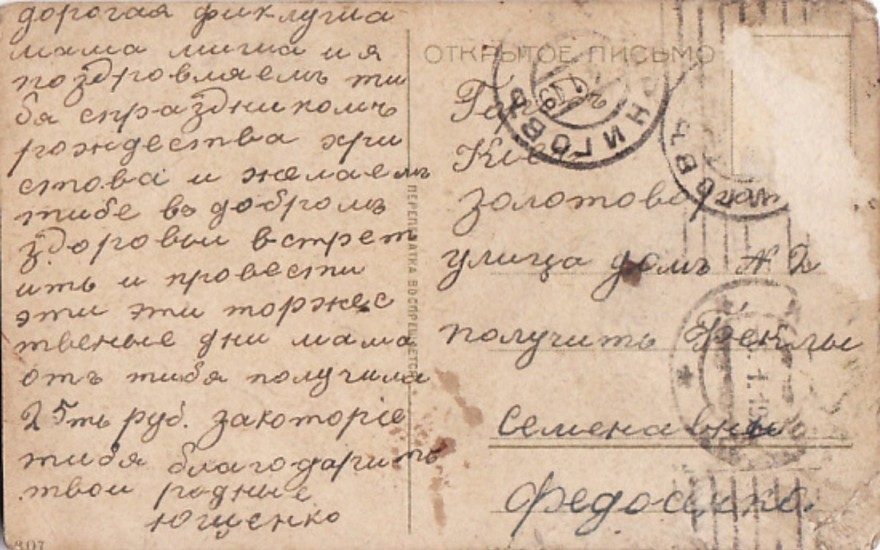 дорогая фиклуша
мама миша и я
поздровляемъ ти
бя спраздникомъ
рождества хри
стова и желаемъ
тибе въ добромъ
здоровьи встрет
ить и провести
эти эти торжес
твеные дни мама
отъ тибя получила
25ть руб. закоторіе
тибя благодарить
твои родные
Ющенко
807
ПЕРЕПЕЧАТКА ВОСПРЕЩАЕТСЯ.
ОТКРЫТОЕ ПИСЬМО
Кіев
золотоворот
улица домъ № 2
получить Феклы
Семенавны
Федоаенко.